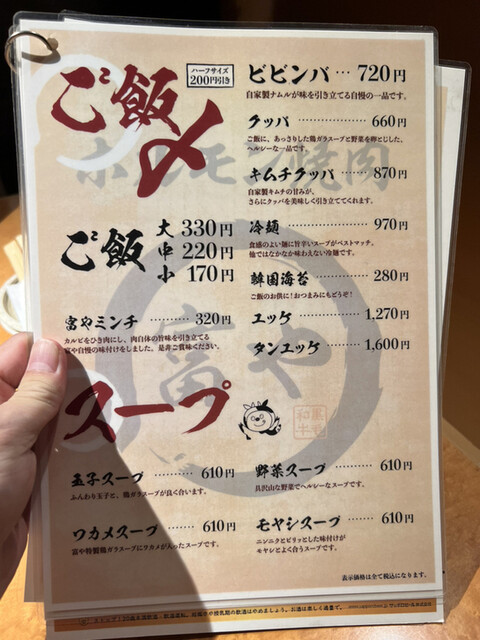 ご飯〆
ハーフサイズ
200円引き
ビビンバ … 720円
自家製ナムルが味を引き立てる自慢の一品です。
クッパ ……… 660円
ご飯に、あっさりした鶏ガラスープと野菜を卵とじした、
ヘルシーな一品です。
キムチクッパ …… 870円
自家製キムチの甘みが、
さらにクッパを美味しく引き立ててくれます。
ホルモン焼肉
ご飯
大 330円
中 220円
小 170円
冷麺 ………… 970円
食感のよい麺に旨辛いスープがベストマッチ。
他ではなかなか味わえない冷麺です。
韓国海苔 ……… 280円
ご飯のお供に！おつまみにもどうぞ！
富やミンチ ……… 320円
カルビをひき肉にし、肉自体の旨味を引き立てる
富や自慢の味付けをしました。是非ご賞味ください。
ユッケ ………… 1,270円
タンユッケ …… 1,600円
富や
スープ
黒毛
和牛
玉子スープ ……… 610円
ふんわり玉子と、鶏ガラスープが良く合います。
野菜スープ ……… 610円
具沢山な野菜でヘルシーなスープです。
ワカメスープ …… 610円
富や特製鶏ガラスープにワカメが入ったスープです。
モヤシスープ …… 610円
ニンニクとピリッとした味付けが
モヤシとよく合うスープです。
表示価格は全て税込になります。